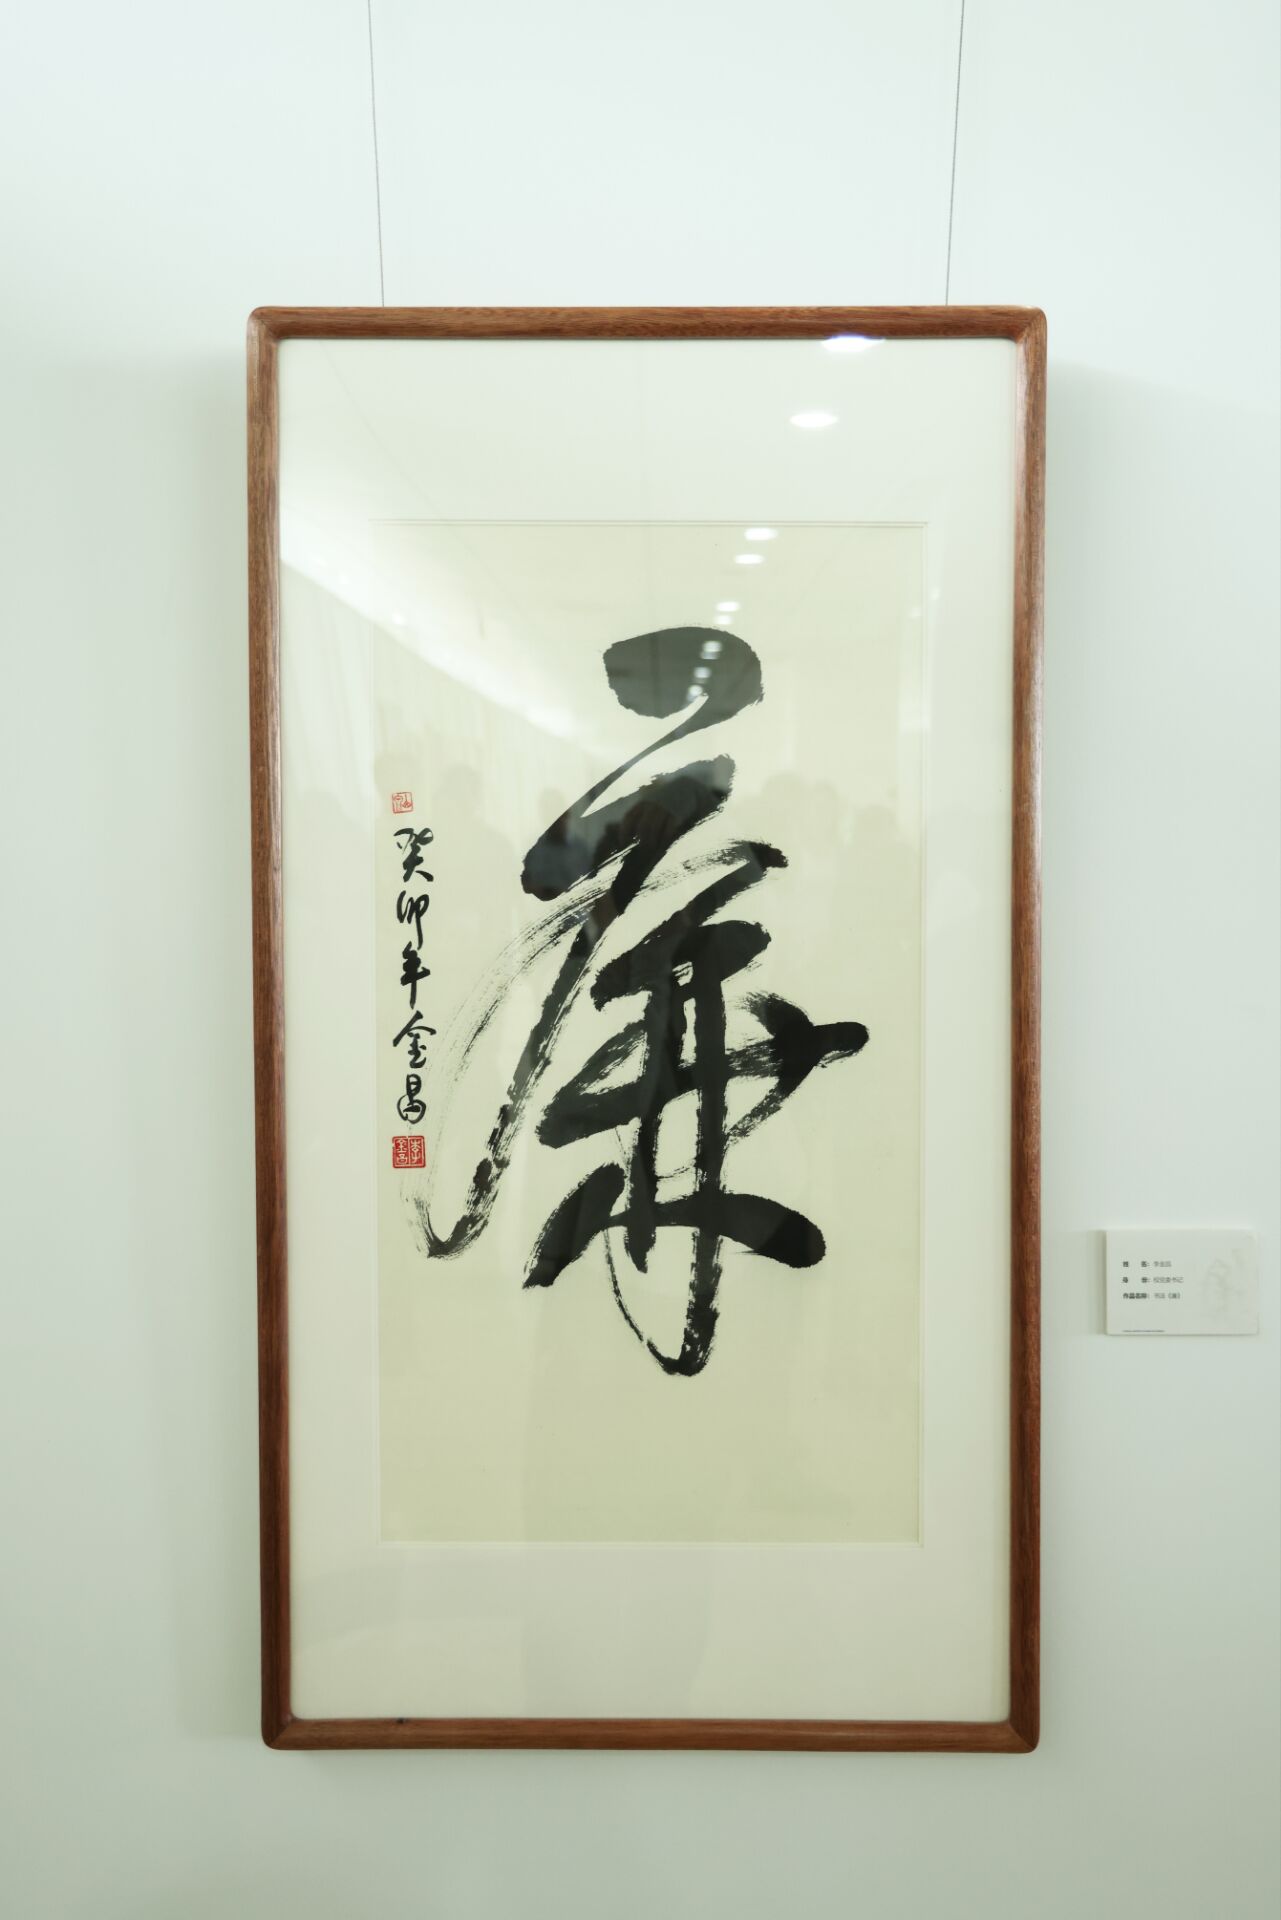 廉
癸卯年金昌
李金昌
姓 名：李金昌
身 份：校党委书记
作品名称：书法《廉》